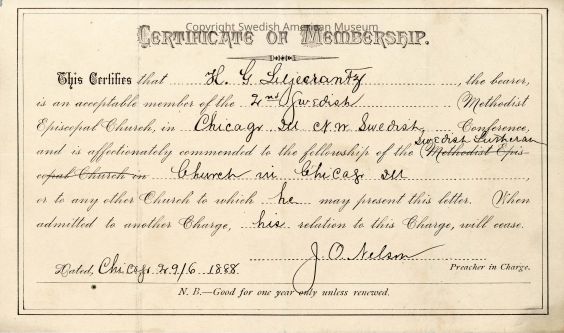 Copyright Swedish American Museum
Certificate of Membership.
This Certifies that H. G. Liljecrantz, the bearer,
is an acceptable member of the 2nd Swedish Methodist
Episcopal Church, in Chicago Ill N.W. Swedish Conference,
Swedish Lutheran
and is affectionately commended to the fellowship of the Methodist Epis
copal Church in Church in Chicago Ill
or to any other Church to which he may present this letter. When
admitted to another Charge, his relation to this Charge, will cease.
J. O. Nelson
Dated, Chicago 29/6 1888. Preacher in Charge.
N. B.—Good for one year only unless renewed.